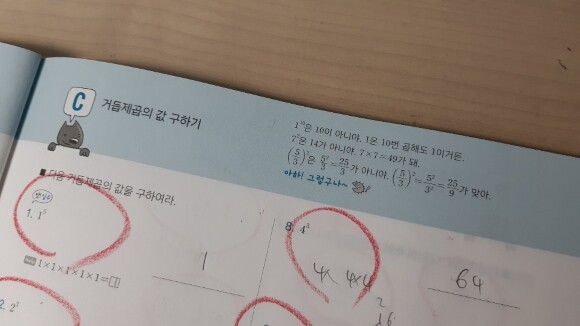 C
거듭제곱의 값 구하기
1¹⁰은 10이 아니야. 1은 10번 곱해도 1이거든.
7²은 14가 아니야. 7×7=49가 돼.
(5/3)²은 5²/3=25/3가 아니야. (5/3)²=5²/3²=25/9가 맞아.
아하! 그렇구나~
■ 다음 거듭제곱의 값을 구하여라.
1. 1⁵
1×1×1×1×1=1
1
2. 2³
8. 4³
4× 4×4
2
16
64